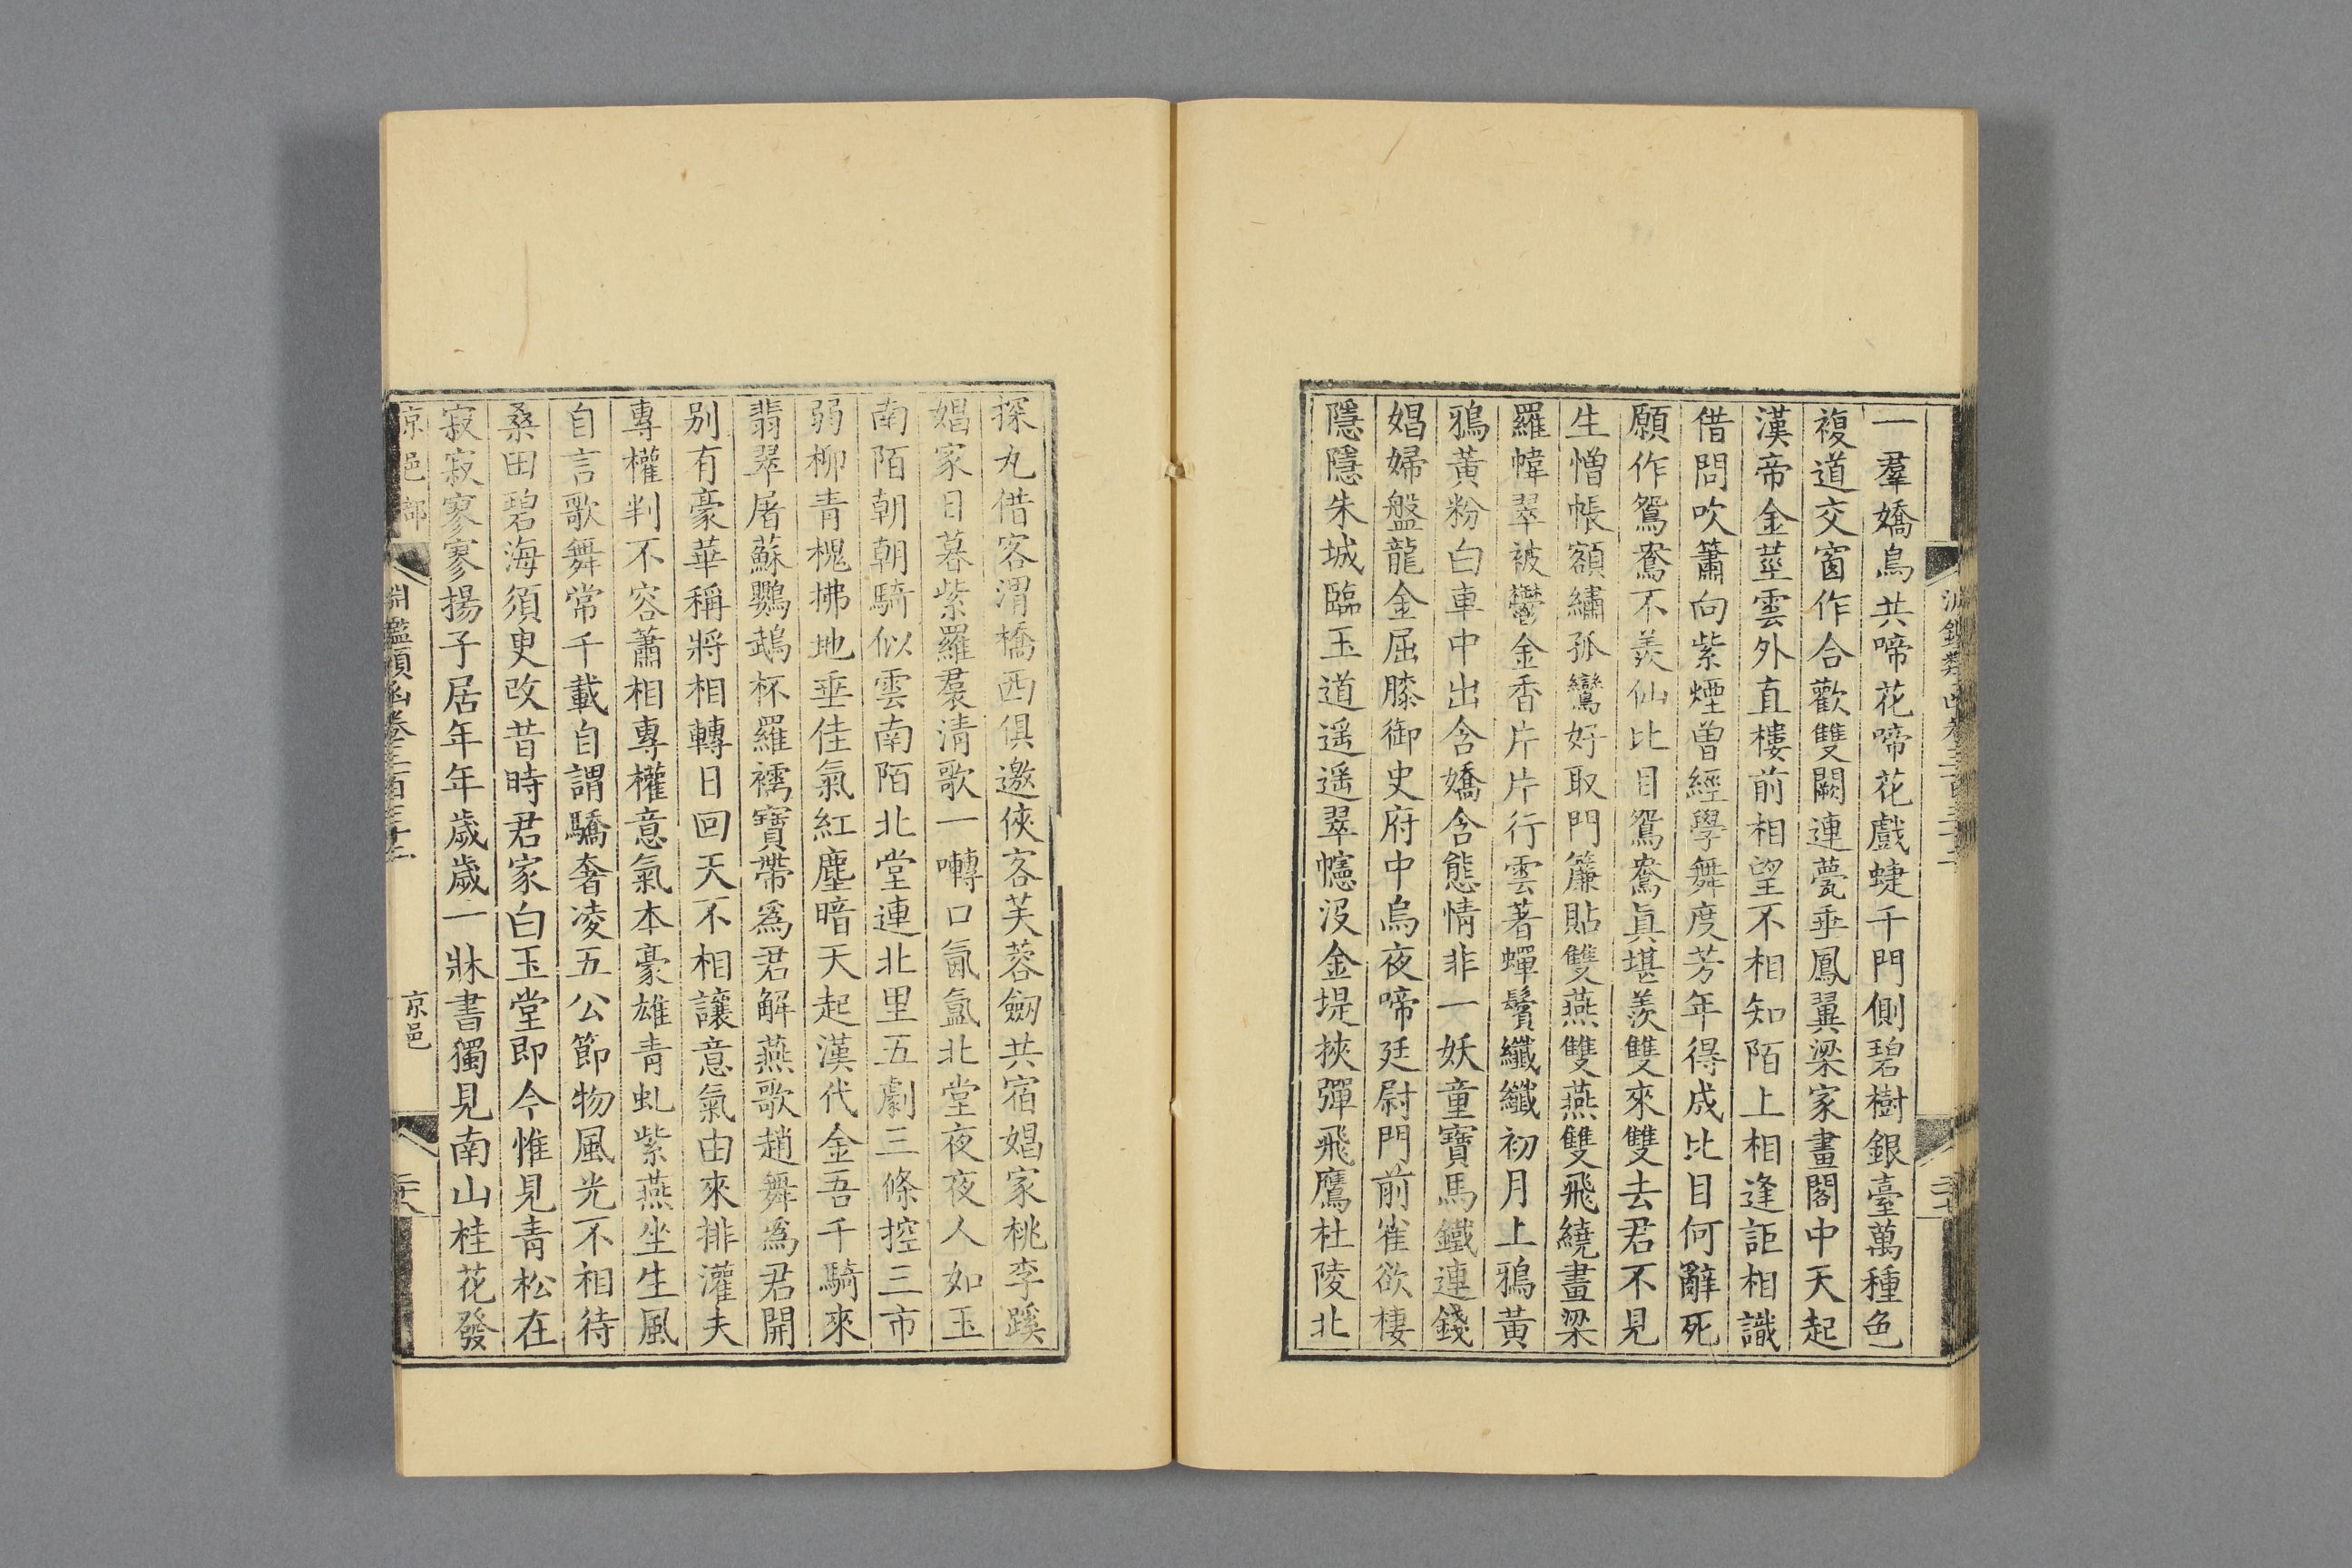 一羣嬌鳥共啼花啼花戲蜨千門側碧樹銀臺萬種色
複道交窗作合歡雙闕連甍垂鳳翼梁家畫閣中天起
漢帝金莖雲外直樓前相望不相知陌上相逢詎相識
借問吹簫向紫煙曾經學舞度芳年得成比目何辭死
願作鴛鴦不羡仙比目鴛鴦眞堪羡雙來雙去君不見
生憎帳額繡孤鸞好取門簾貼雙燕雙燕雙飛繞畫梁
羅幃翠被鬱金香片片行雲著蟬鬢纖纖初月上鴉黃
鴉黃粉白車中出含嬌含態情非一妖童寶馬鐵連錢
娼婦盤龍金屈膝御史府中烏夜啼廷尉門前雀欲棲
隱隱朱城臨玉道遥遥翠幰沒金堤挾彈飛鷹杜陵北
探丸借客渭橋西俱邀俠客芙蓉劒共宿娼家桃李蹊
娼家日暮紫羅裙清歌一囀口氤氳北堂夜夜人如玉
南陌朝朝騎似雲南陌北堂連北里五劇三條控三市
弱柳青槐拂地垂佳氣紅塵暗天起漢代金吾千騎來
翡翠屠蘇鸚鵡杯羅襦寶帶爲君解燕歌趙舞爲君開
别有豪華稱將相轉日回天不相讓意氣由來排灌夫
專權判不容蕭相專權意氣本豪雄青虬紫燕坐生風
自言歌舞常千載自謂驕奢凌五公節物風光不相待
桑田碧海須臾改昔時君家白玉堂即今惟見青松在
寂寂寥寥揚子居年年歲歲一牀書獨見南山桂花發
京邑部 淵鑑類函卷三百三十三 京邑 二十八